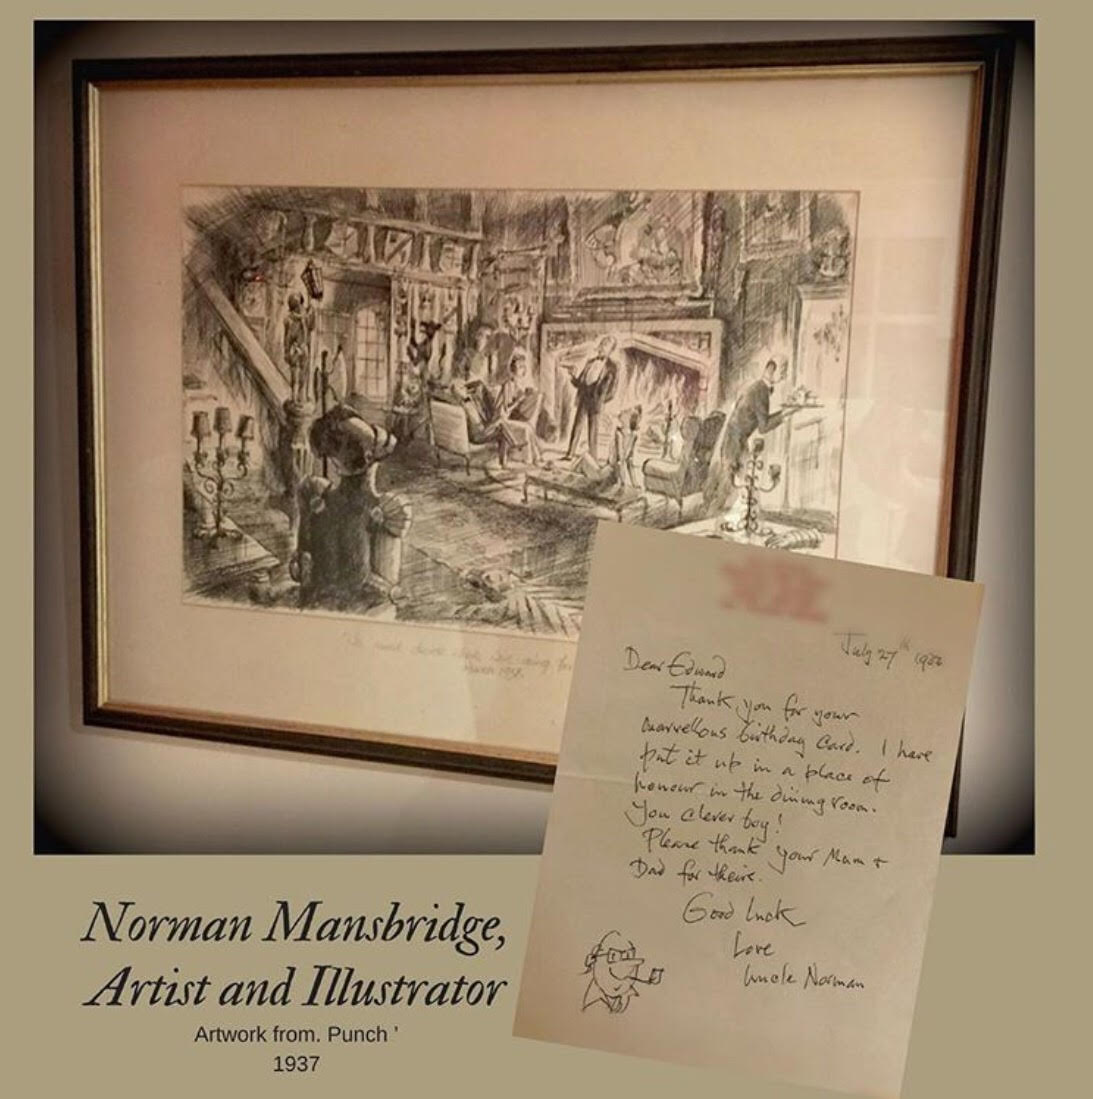 March 1937.
July 27th 1982
Dear Edward
Thank you for your
marvellous birthday card. I have
put it up in a place of
honour in the dining room.
You clever boy!
Please thank your Mum +
Dad for theirs.
Good luck
Love
Uncle Norman
Norman Mansbridge,
Artist and Illustrator
Artwork from. Punch '
1937